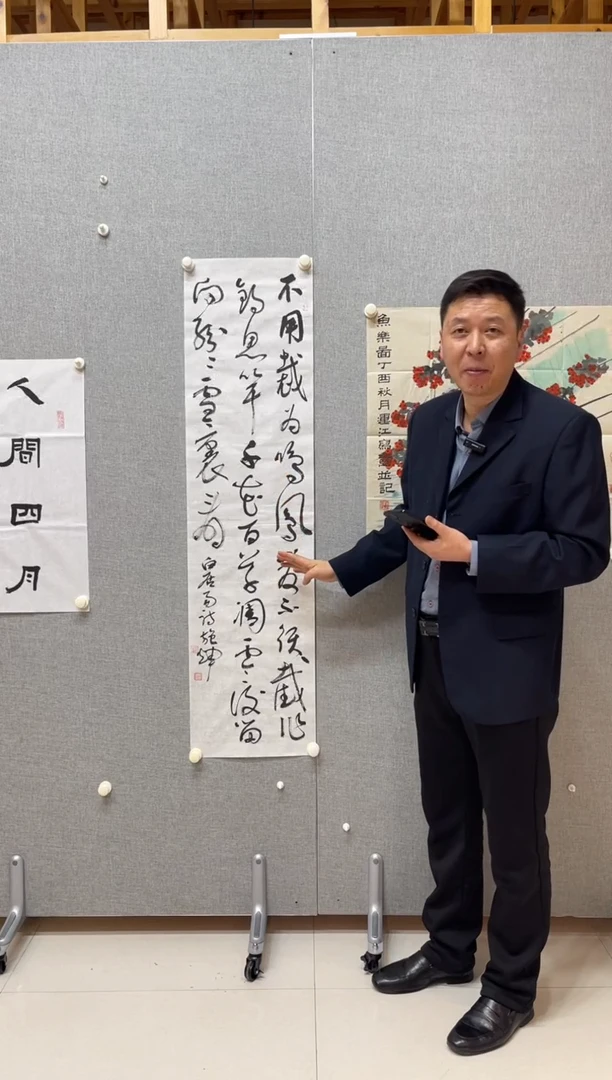 魚樂圖丁酉秋月連江寫意並記
不用裁为鳴鳳管不须截作
钓魚竿千花百草凋零後留
向紛々雪裏看
白居易诗
人間四月